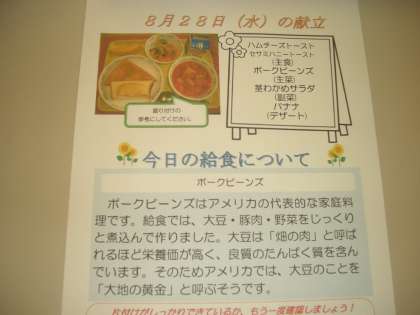 8月28日（水）の献立
ハムチーズトースト
セサミハニートースト
(主食)
ポークビーンズ
(主菜)
茎わかめサラダ
(副菜)
バナナ
(デザート)
盛り付けの
参考にしてください。
今日の給食について
ポークビーンズ
ポークビーンズはアメリカの代表的な家庭料
理です。給食では、大豆・豚肉・野菜をじっくり
と煮込んで作りました。大豆は「畑の肉」と呼ば
れるほど栄養価が高く、良質のたんぱく質を含ん
でいます。そのためアメリカでは、大豆のことを
「大地の黄金」と呼ぶそうです。
片付けがしっかりできているか、もう一度確認しましょう！